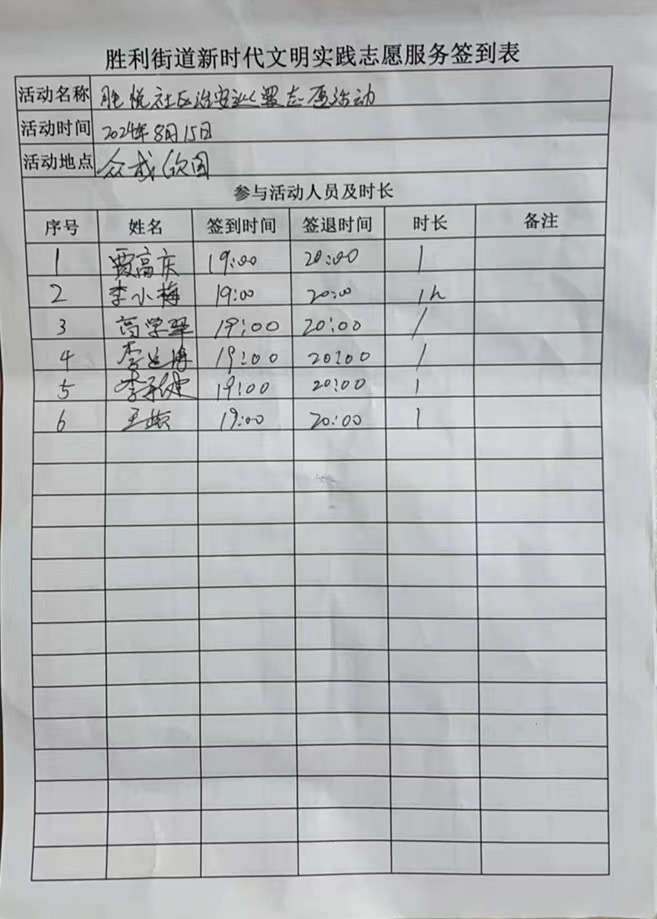 胜利街道新时代文明实践志愿服务签到表
活动名称 胜悦社区治安巡逻志愿活动
活动时间 2024年8月15日
活动地点 众成欣园
参与活动人员及时长
序号 姓名 签到时间 签退时间 时长 备注
1 贾高庆 19:00 20:00 1
2 李小梅 19:00 20:00 1h
3 高学 19:00 20:00 1
4 李 19:00 20:00 1
5 李 19:00 20:00 1
6 王 19:00 20:00 1